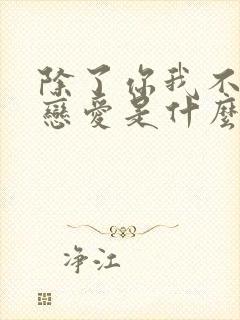 除了你我不
戀愛是什麼
净江